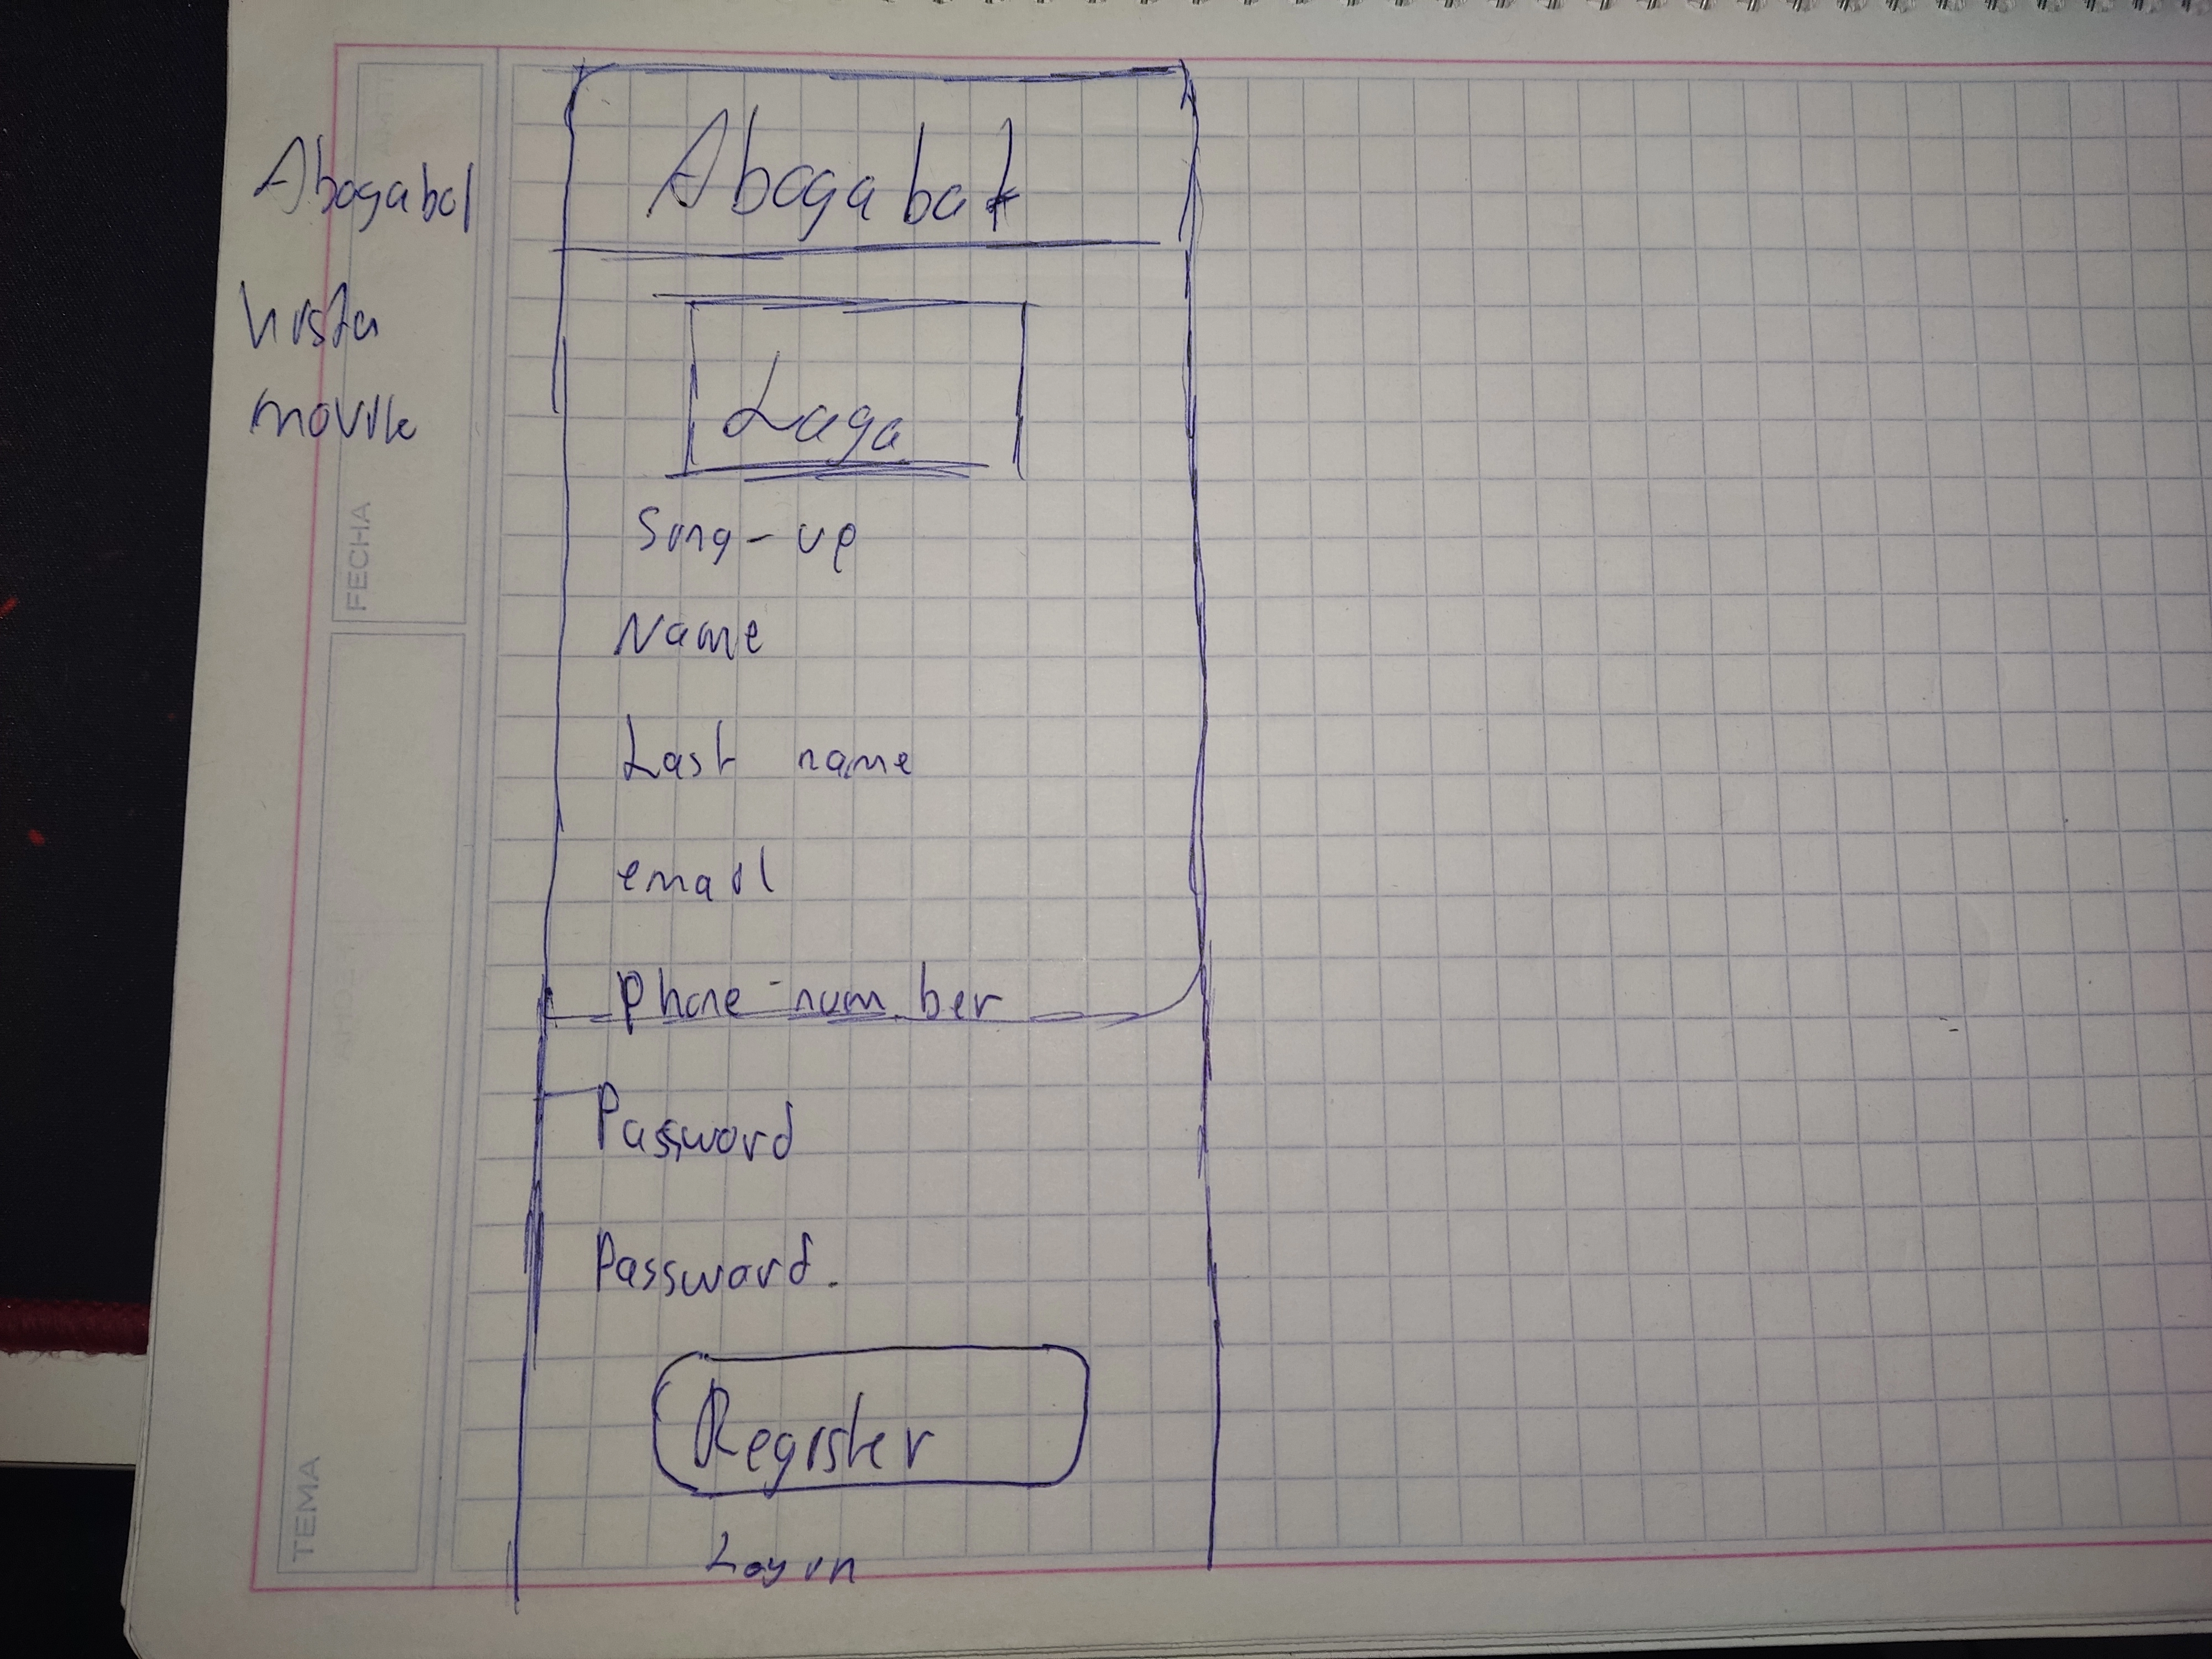 Abogabot
Vista
movile
Abogabot
Logo
Sing-up
Name
Last name
email
Phone-number
Password
Password.
Register
Log in
FECHA
TEMA